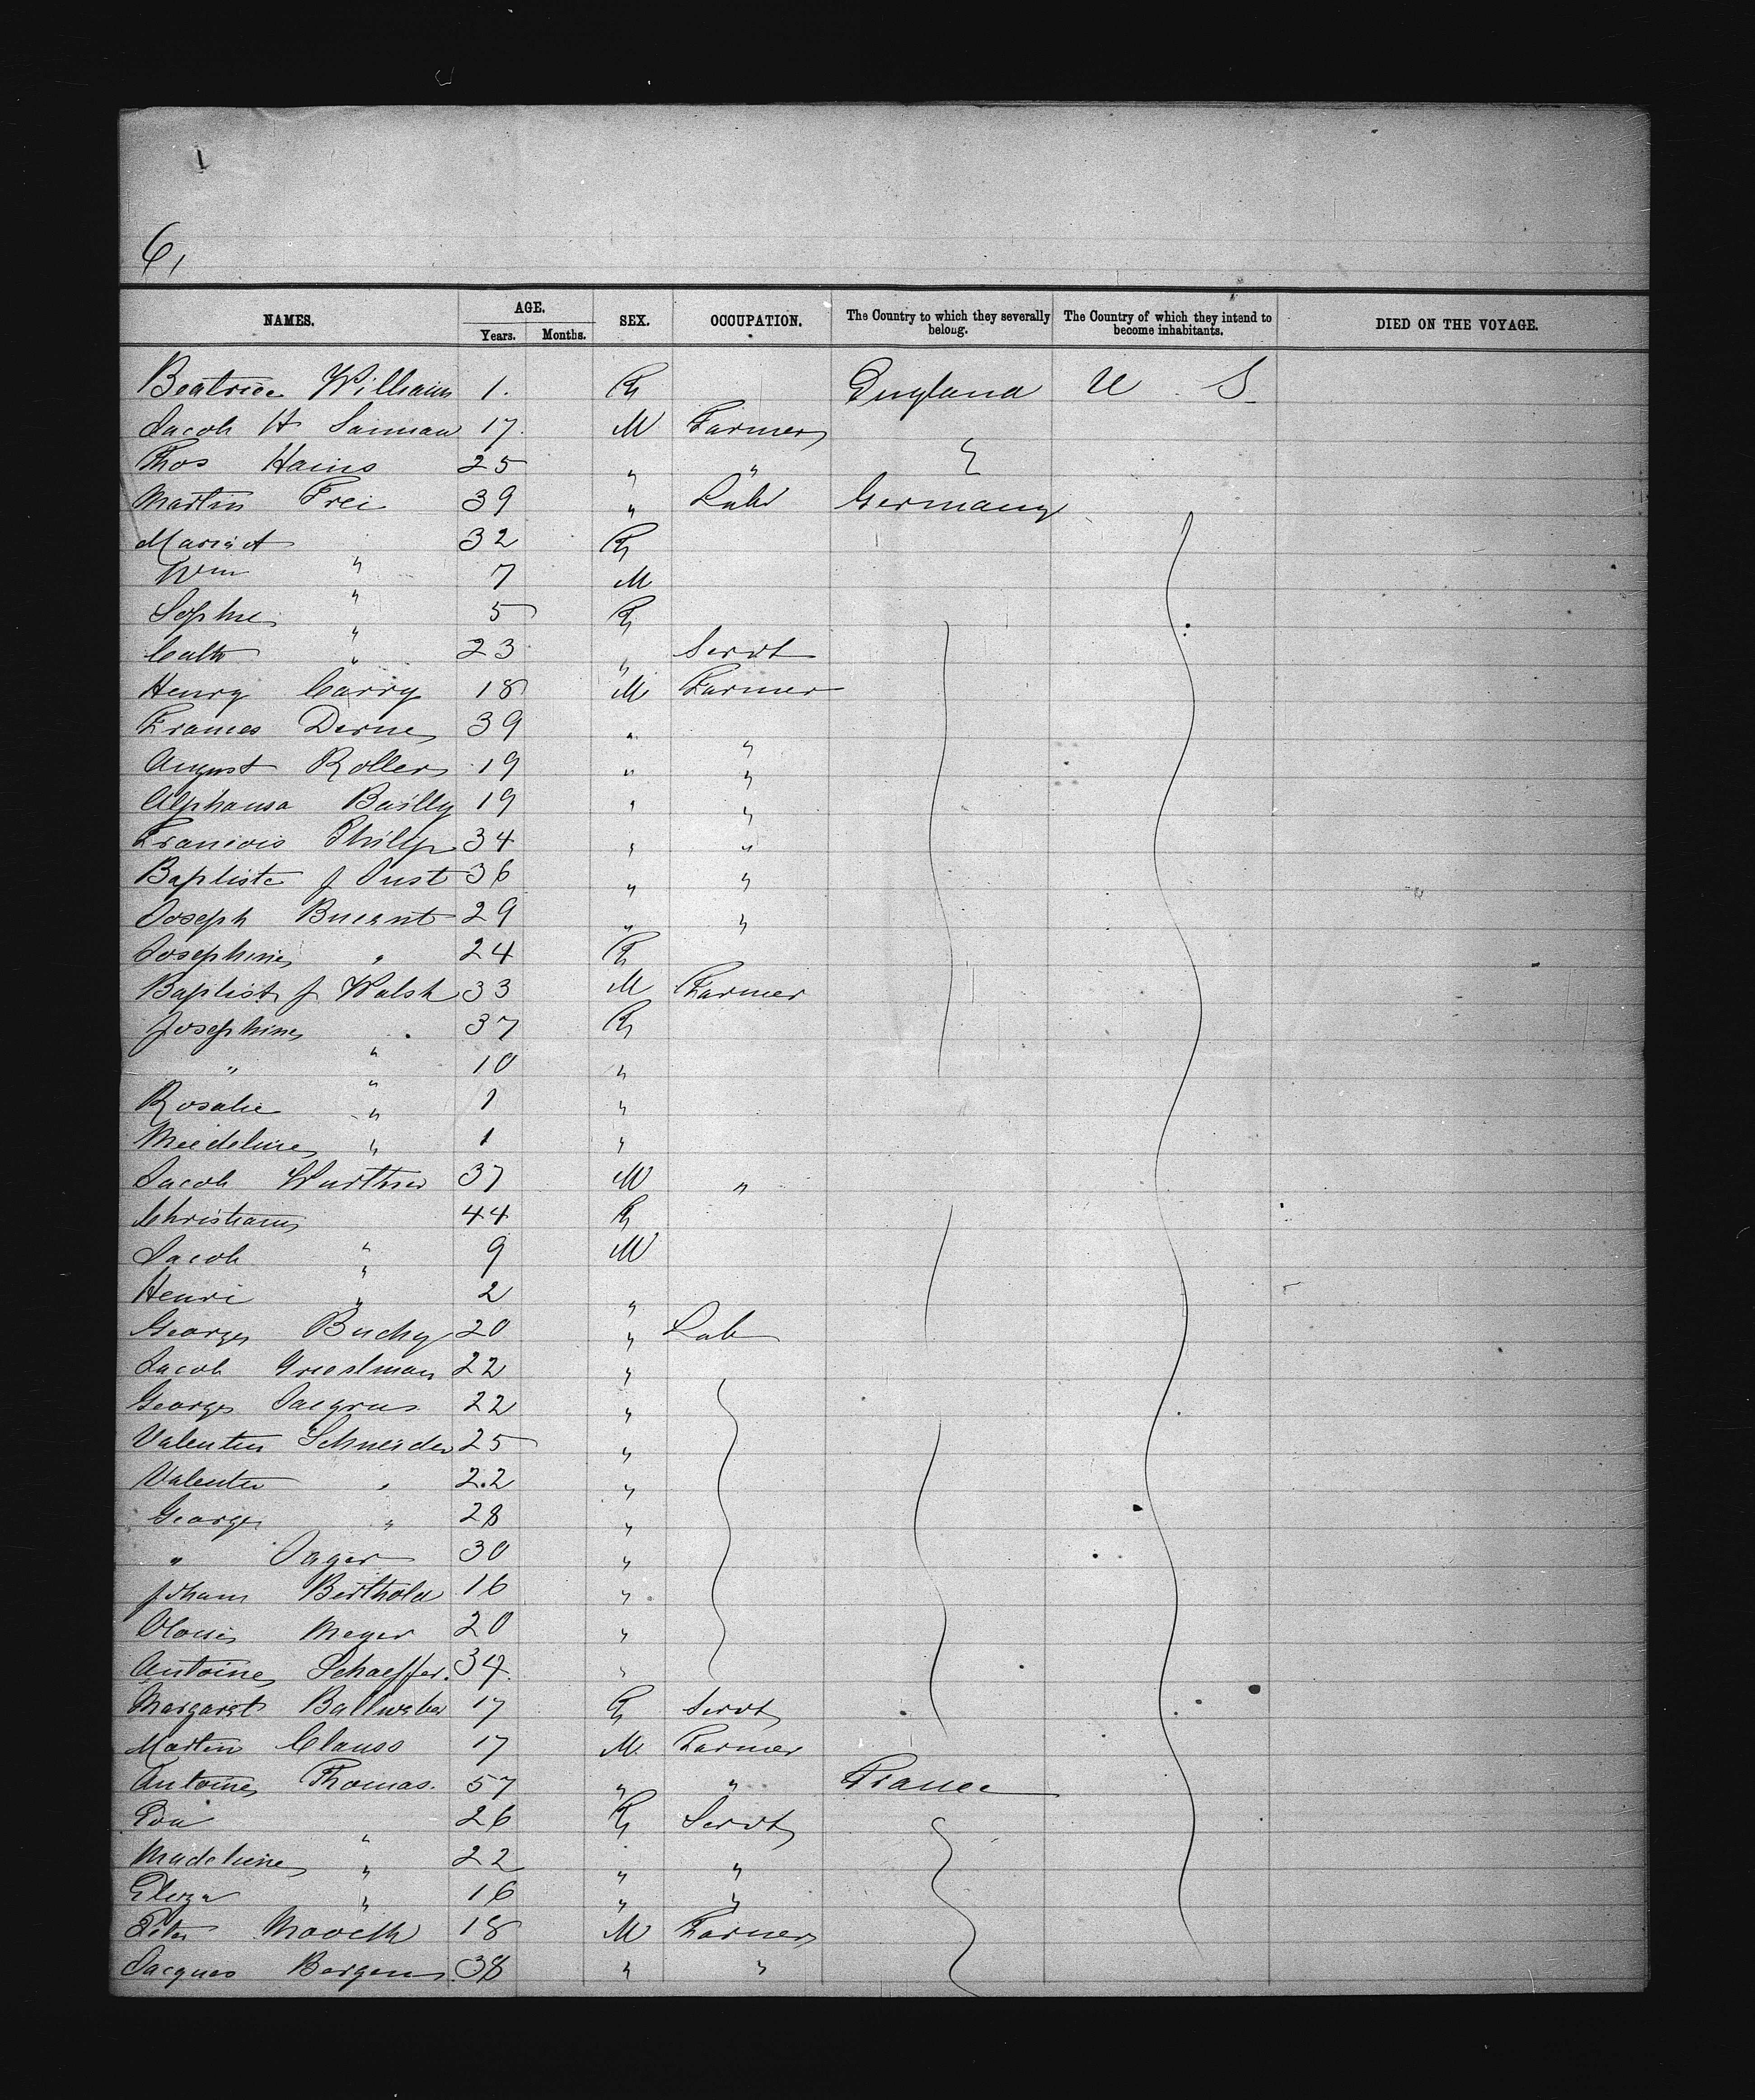 6,
NAMES. AGE. Years. Months. SEX. OCCUPATION. The Country to which they severally belong. The Country of which they intend to become inhabitants. DIED ON THE VOYAGE.
Beatrice William 1. F England U S
Jacob H Saiman 17. M Farmer
Thos Hains 25 " "
Martin Frei 39 " Labr Germany
Maria A " 32 F
Wm " 7 M
Sophie " 5 F
Cath " 23 " Servt
Henry Carry 18 M Farmer
Frances Derne 39 " "
August Roller 19 " "
Alphonsa Bailly 19 " "
Francois Philip 34 " "
Baptiste J Just 36 " "
Joseph 29 " "
Josephine " 24 F
Baptist J Walsh 33 M Farmer
Josephine " 37 F
" " 10 "
Rosalie " 1 "
Meedeline " 1 "
Jacob Wurthner 37 M "
Christiann " 44 F
Jacob " 9 M
Henri " 2 "
George Buchy 20 " Lab
Jacob Grieslman 22 "
George 22 "
Valentin Schneider 25 "
Valentin " 22 "
George " 28 "
" Jager 30 "
Johann Berthold 16 "
Aloise Meyer 20 "
Antoine Schaeffer. 34. "
Margaret Ballweber 17 F Servt
Martin Clauss 17 M. Farmer
Antoine Thomas. 57 " " France
Eva " 26 F Servt
Madeleine " 22 " "
Eliza " 16 " "
Peter 18 M Farmer
Jacques Bergem. 38 " "